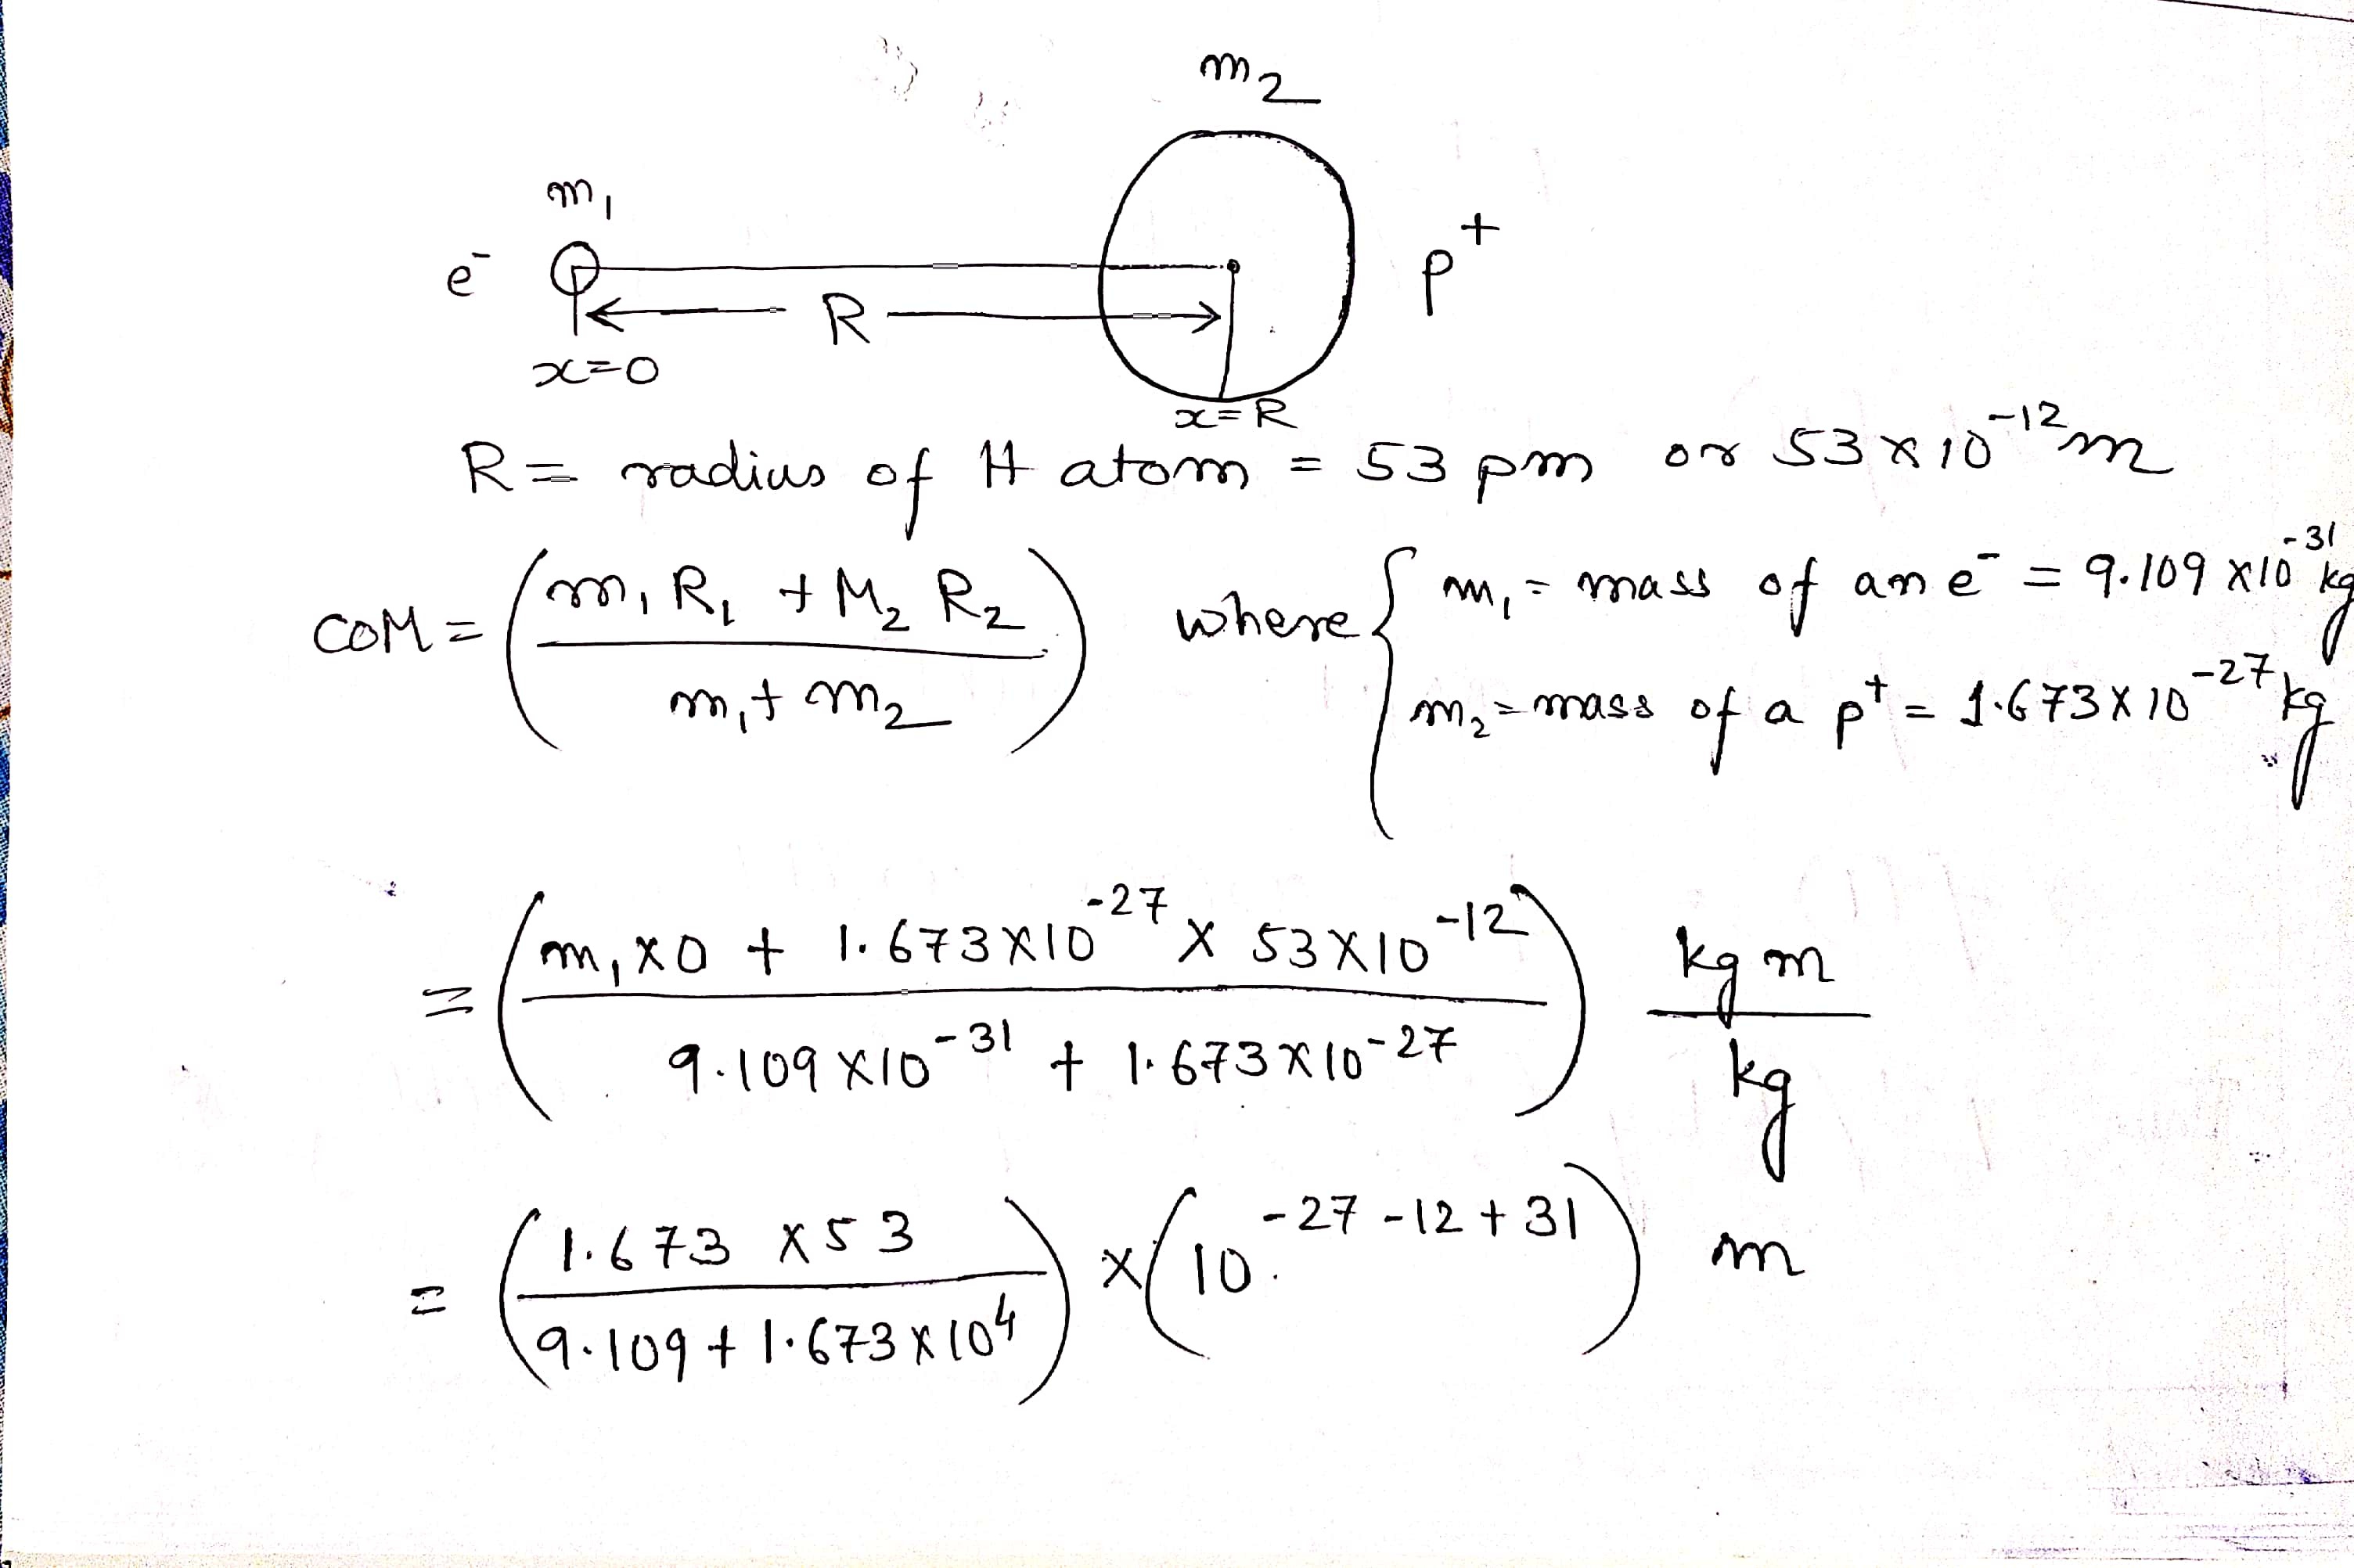 m₂
m₁
e⁻ p⁺
R
x=0
x=R
R = radius of H atom = 53 pm or 53 × 10⁻¹² m
COM = (m₁R₁ + M₂R₂ / m₁ + m₂) where { m₁ = mass of an e⁻ = 9.109 × 10⁻³¹ kg
m₂ = mass of a p⁺ = 1.673 × 10⁻²⁷ kg
= (m₁×0 + 1.673×10⁻²⁷ × 53×10⁻¹² / 9.109×10⁻³¹ + 1.673×10⁻²⁷) kg m / kg
= (1.673 × 53 / 9.109 + 1.673×10⁴) × (10⁻²⁷⁻¹²⁺³¹) m